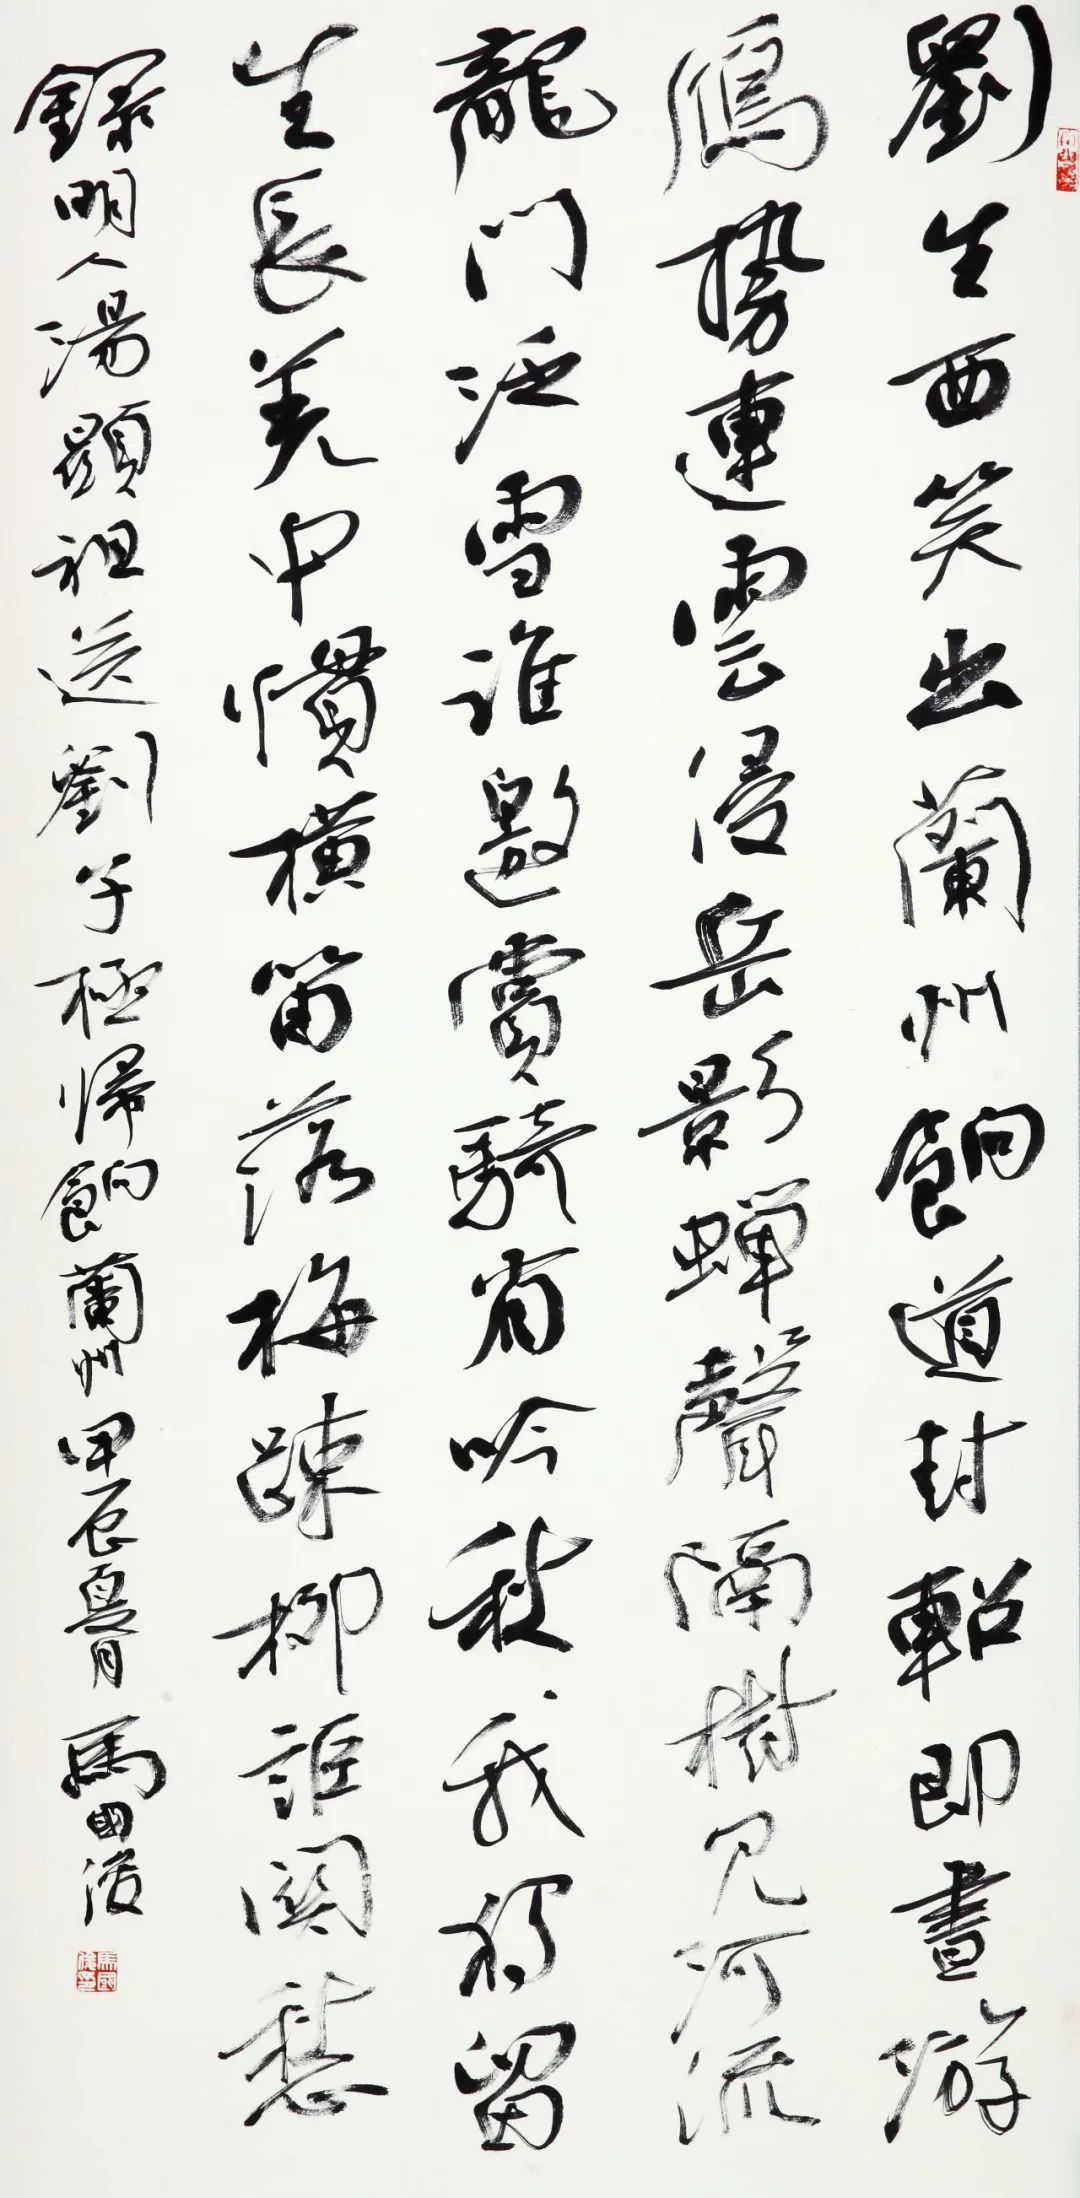 劉生西笑出蘭州餉道封軺即晝游
鴈勢連雲侵岳影蟬聲隔樹見河流
龍門泛雪誰邀賞騎省吟秋我獨留
生長羌中慣横笛落梅踈柳詎関愁
錄明人湯顯祖送劉子極歸餉蘭州甲辰夏月馬国俊
馬國俊印